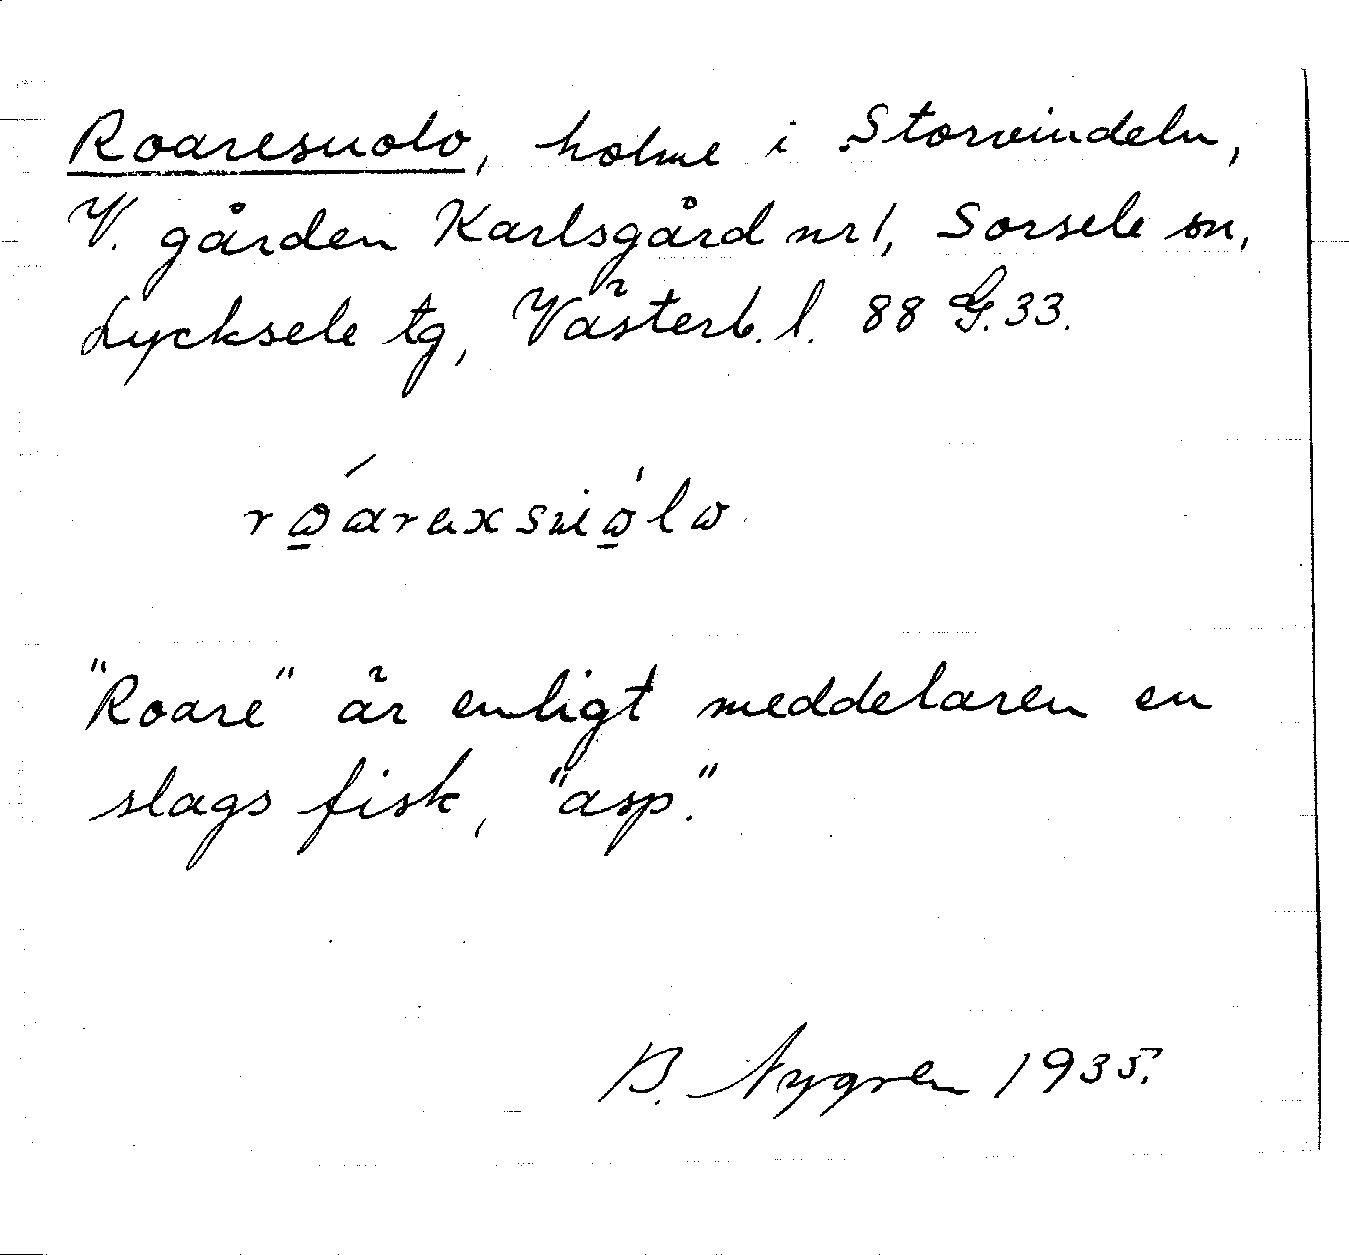 Roaresuolo, holme i Storvindeln,
V. gården Karlsgård nr 1, Sorsele sn,
Lycksele tg, Västerb. l. 88 G. 33.
"Roare" är enligt meddelaren en
slags fisk, "asp".
B. Nygren 1935.